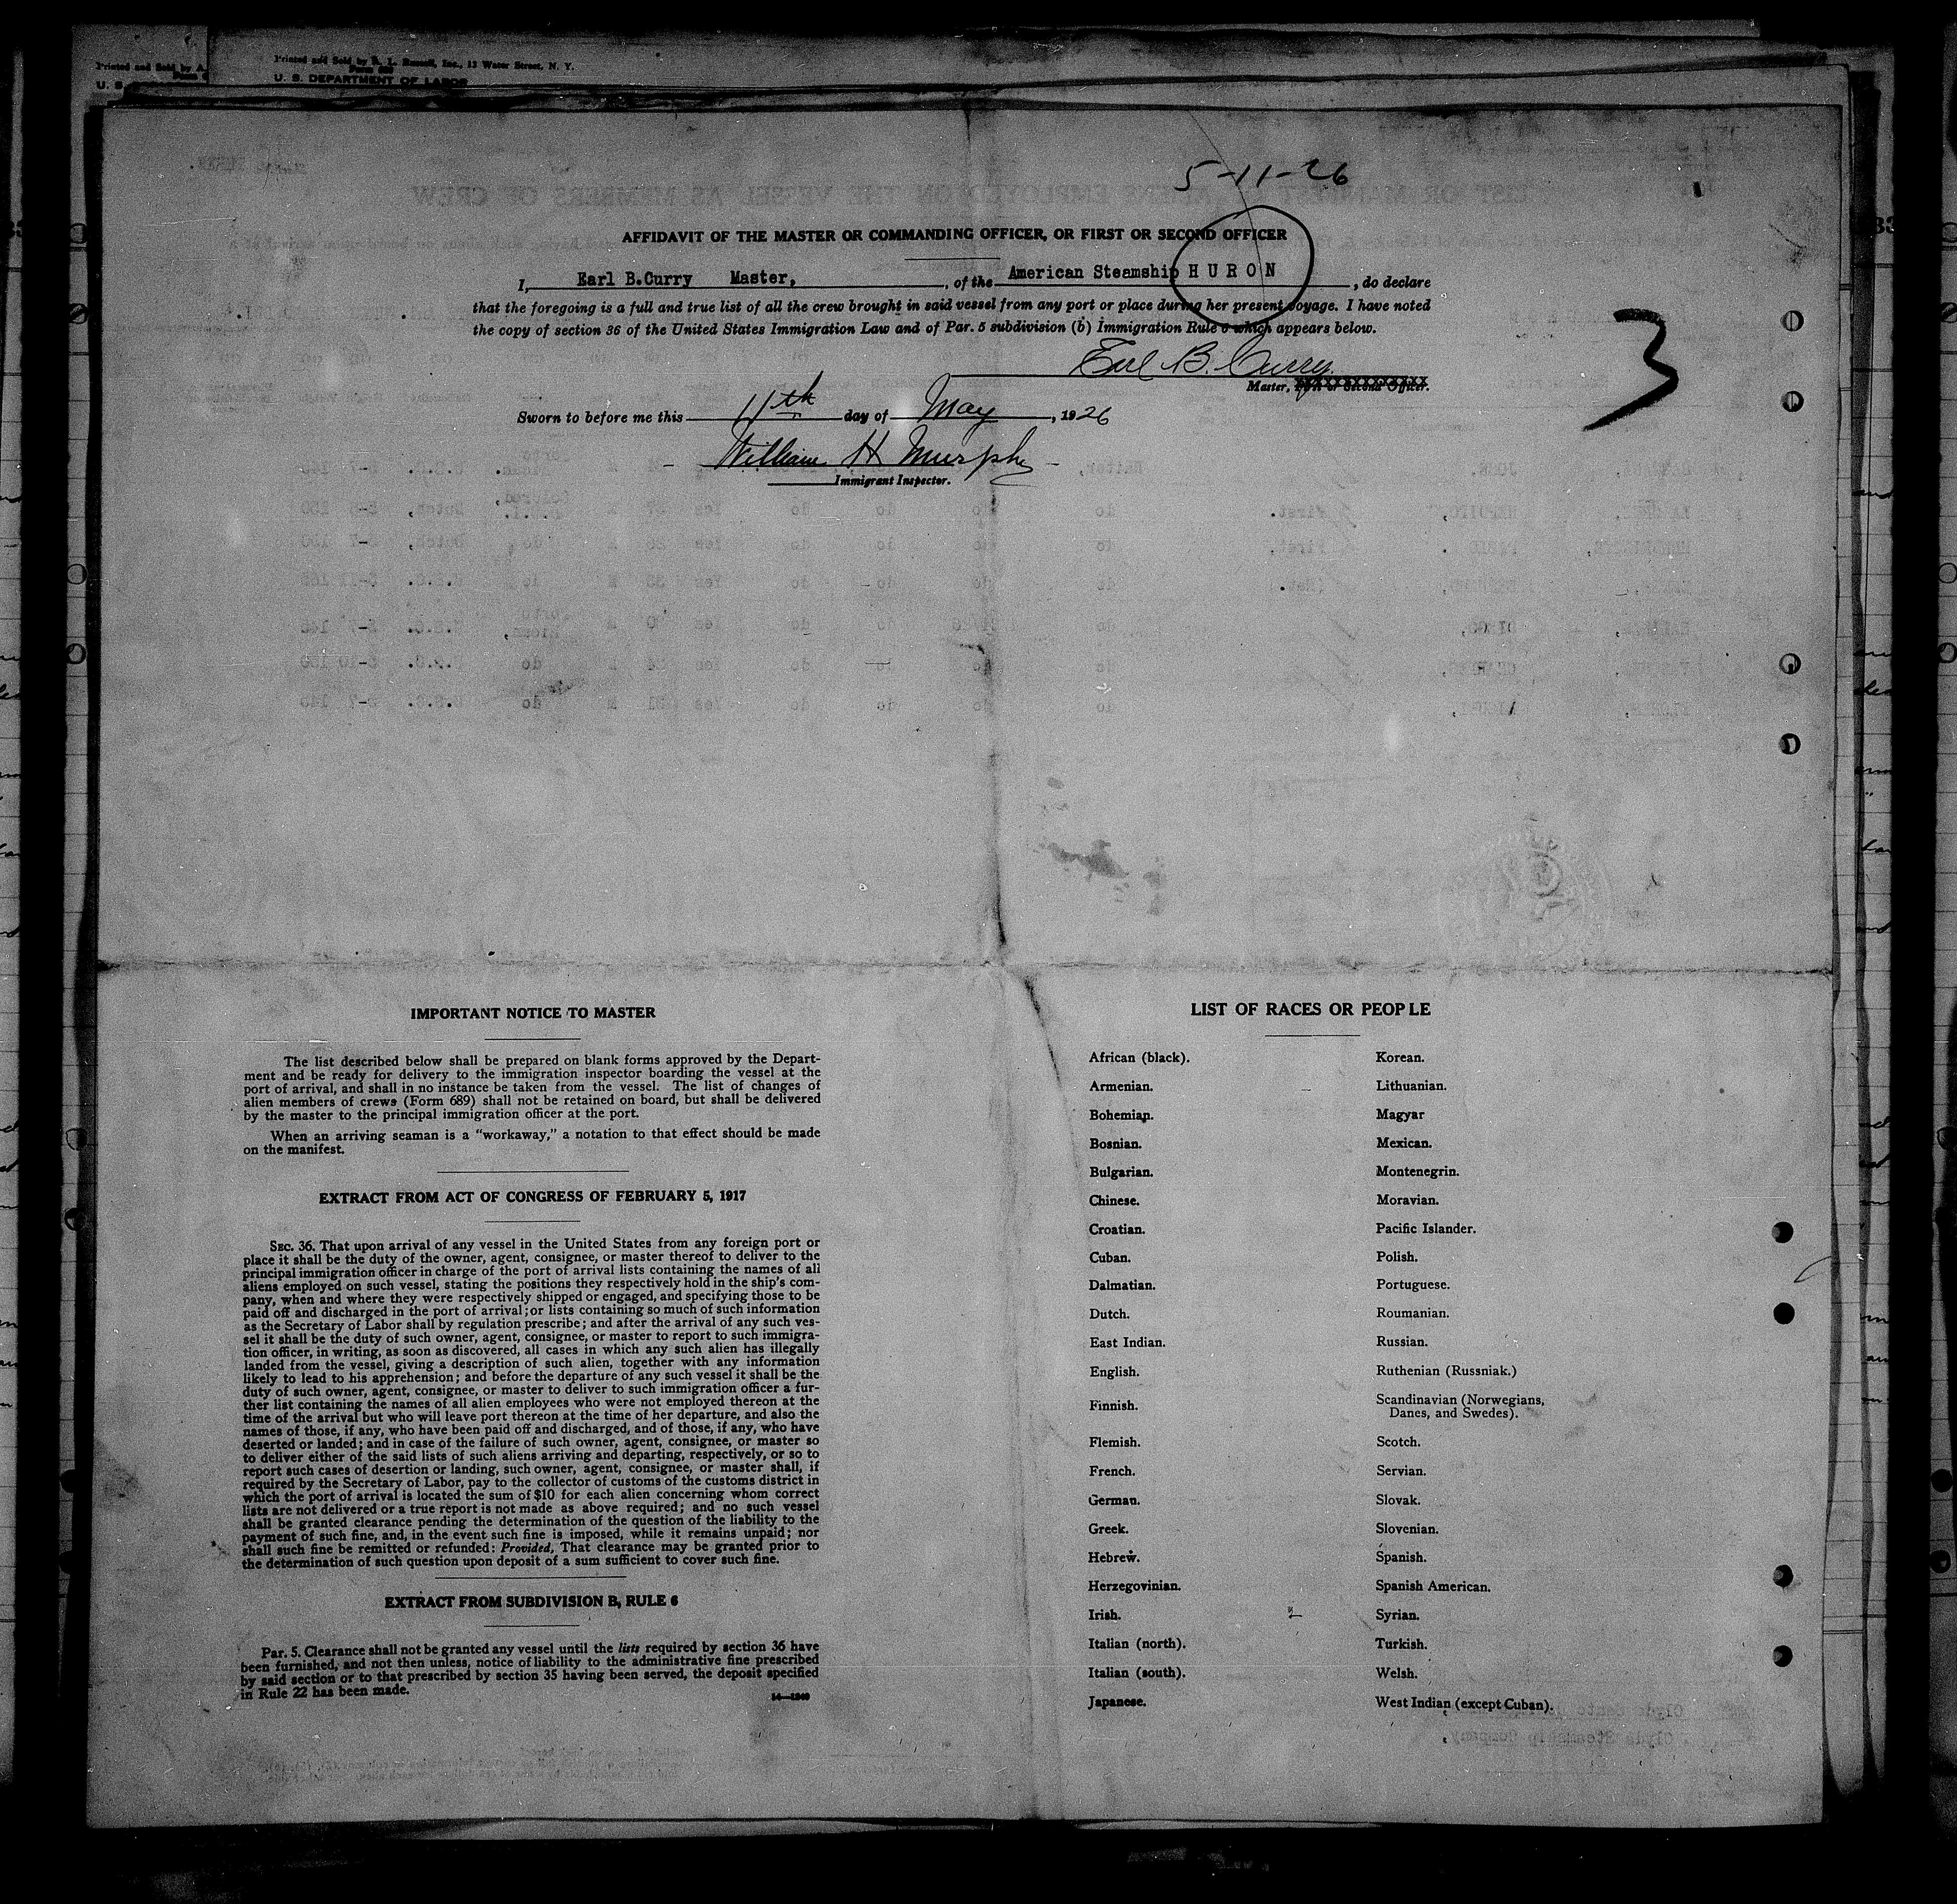 Printed and Sold by A.
U. S.
Printed and Sold by R. L. Russell, Inc., 13 Water Street, N. Y.
U. S. DEPARTMENT OF LABOR
5-11-26
AFFIDAVIT OF THE MASTER OR COMMANDING OFFICER, OR FIRST OR SECOND OFFICER
I, Earl B.Curry Master, , of the American Steamship HURON , do declare
that the foregoing is a full and true list of all the crew brought in said vessel from any port or place during her present voyage. I have noted
the copy of section 36 of the United States Immigration Law and of Par. 5 subdivision (b) Immigration Rule 6 which appears below.
3
Earl B. Curry
Master, First or Second Officer.
Sworn to before me this 11th day of May , 1926
William H Murphy
Immigrant Inspector.
IMPORTANT NOTICE TO MASTER
The list described below shall be prepared on blank forms approved by the Depart-
ment and be ready for delivery to the immigration inspector boarding the vessel at the
port of arrival, and shall in no instance be taken from the vessel. The list of changes of
alien members of crews (Form 689) shall not be retained on board, but shall be delivered
by the master to the principal immigration officer at the port.
When an arriving seaman is a “workaway,” a notation to that effect should be made
on the manifest.
EXTRACT FROM ACT OF CONGRESS OF FEBRUARY 5, 1917
SEC. 36. That upon arrival of any vessel in the United States from any foreign port or
place it shall be the duty of the owner, agent, consignee, or master thereof to deliver to the
principal immigration officer in charge of the port of arrival lists containing the names of all
aliens employed on such vessel, stating the positions they respectively hold in the ship's com-
pany, when and where they were respectively shipped or engaged, and specifying those to be
paid off and discharged in the port of arrival; or lists containing so much of such information
as the Secretary of Labor shall by regulation prescribe; and after the arrival of any such ves-
sel it shall be the duty of such owner, agent, consignee, or master to report to such immigra-
tion officer, in writing, as soon as discovered, all cases in which any such alien has illegally
landed from the vessel, giving a description of such alien, together with any information
likely to lead to his apprehension; and before the departure of any such vessel it shall be the
duty of such owner, agent, consignee, or master to deliver to such immigration officer a fur-
ther list containing the names of all alien employees who were not employed thereon at the
time of the arrival but who will leave port thereon at the time of her departure, and also the
names of those, if any, who have been paid off and discharged, and of those, if any, who have
deserted or landed; and in case of the failure of such owner, agent, consignee, or master so
to deliver either of the said lists of such aliens arriving and departing, respectively, or so to
report such cases of desertion or landing, such owner, agent, consignee, or master shall, if
required by the Secretary of Labor, pay to the collector of customs of the customs district in
which the port of arrival is located the sum of $10 for each alien concerning whom correct
lists are not delivered or a true report is not made as above required; and no such vessel
shall be granted clearance pending the determination of the question of the liability to the
payment of such fine, and, in the event such fine is imposed, while it remains unpaid; nor
shall such fine be remitted or refunded: Provided, That clearance may be granted prior to
the determination of such question upon deposit of a sum sufficient to cover such fine.
EXTRACT FROM SUBDIVISION B, RULE 6
Par. 5. Clearance shall not be granted any vessel until the lists required by section 36 have
been furnished, and not then unless, notice of liability to the administrative fine prescribed
by said section or to that prescribed by section 35 having been served, the deposit specified
in Rule 22 has been made.
LIST OF RACES OR PEOPLE
African (black).
Armenian.
Bohemian.
Bosnian.
Bulgarian.
Chinese.
Croatian.
Cuban.
Dalmatian.
Dutch.
East Indian.
English.
Finnish.
Flemish.
French.
German.
Greek.
Hebrew.
Herzegovinian.
Irish.
Italian (north).
Italian (south).
Japanese.
Korean.
Lithuanian.
Magyar
Mexican.
Montenegrin.
Moravian.
Pacific Islander.
Polish.
Portuguese.
Roumanian.
Russian.
Ruthenian (Russniak.)
Scandinavian (Norwegians,
Danes, and Swedes).
Scotch.
Servian.
Slovak.
Slovenian.
Spanish.
Spanish American.
Syrian.
Turkish.
Welsh.
West Indian (except Cuban).